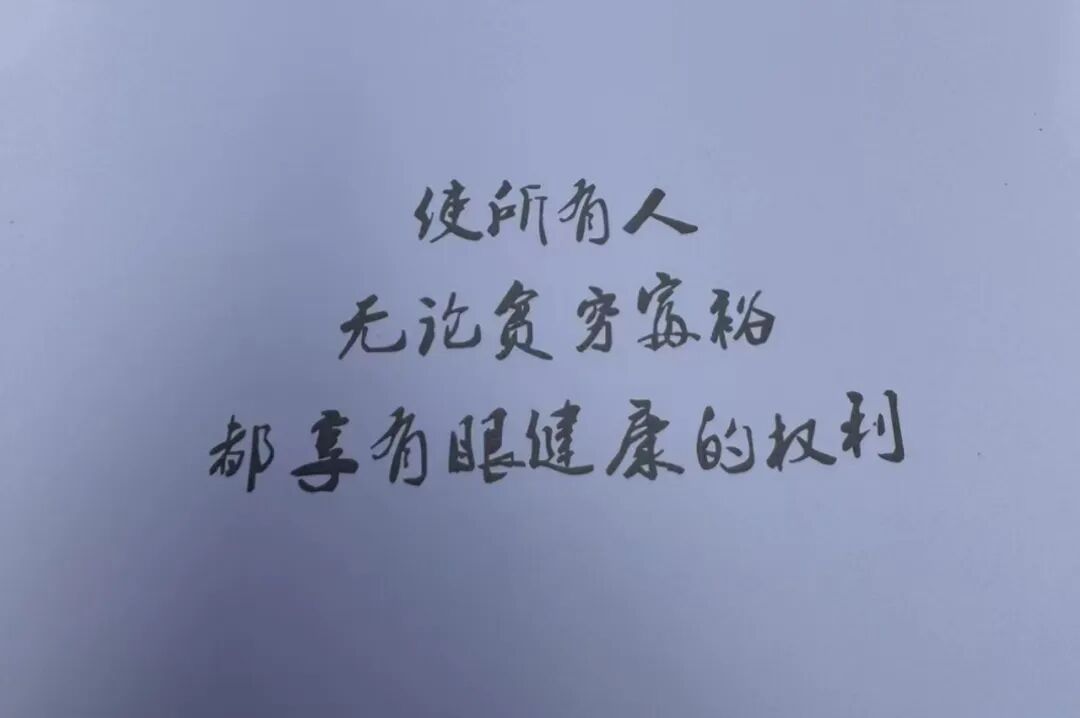 使所有人
无论贫穷富裕
都享有眼健康的权利